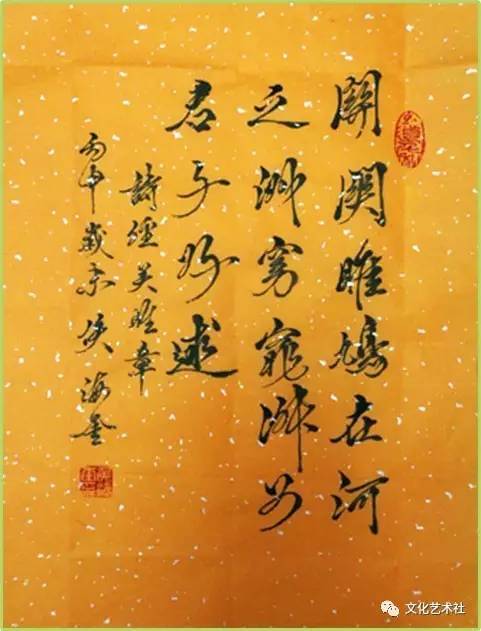 關関雎鳩在河
之洲窈窕淑女
君子好逑
詩經关雎章
丙申歲 海金
文化艺术社